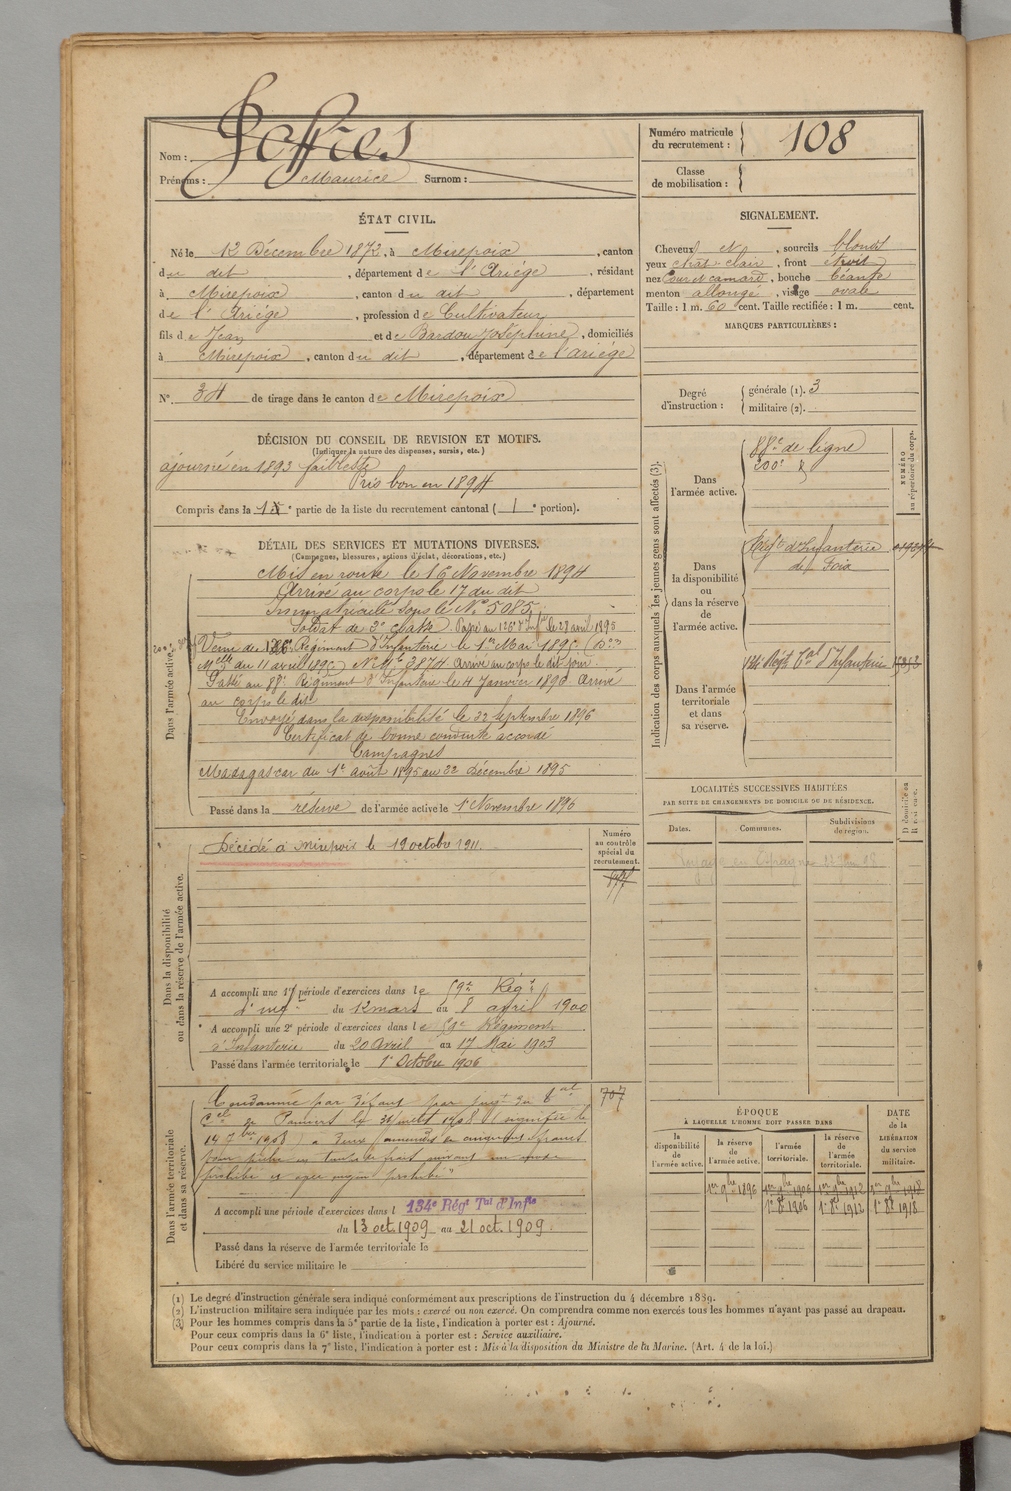 Nom : Joffres
Prénoms : Maurice Surnom :
Numéro matricule du recrutement : 108
Classe de mobilisation :
ÉTAT CIVIL.
Né le 12 Décembre 1872, à Mirepoix, canton
du dit, département de l'Ariège, résidant
à Mirepoix, canton du dit, département
de l'Ariège, profession de Cultivateur
fils de Jean et de Bardou Joséphine, domiciliés
à Mirepoix, canton du dit, département de l'ariège
N° 34 de tirage dans le canton de Mirepoix
DÉCISION DU CONSEIL DE REVISION ET MOTIFS.
(Indiquer la nature des dispenses, sursis, etc.)
ajourné en 1893 faiblesse
Pris bon en 1894
Compris dans la 1e partie de la liste du recrutement cantonal (1e portion).
DÉTAIL DES SERVICES ET MUTATIONS DIVERSES.
(Campagnes, blessures, actions d'éclat, décorations, etc.)
Dans l'armée active.
Mis en route le 16 Novembre 1894
Arrivé au corps le 17 du dit
Immatriculé sous le N° 5085
Soldat de 2e classe Passé au 126e d'Infie le 28 avril 1895
Venu du 126e Régiment d'Infanterie le 1er Mai 1895
du 11 avril 1895) N° Mle 3874 Arrivé au corps le dit jour
Passé au 88e Régiment d'Infanterie le 4 Janvier 1896 Arrivé
au corps le dit
Envoyé dans la disponibilité le 22 Septembre 1896
Certificat de bonne conduite accordé
Campagnes
Madagascar du 1er août 1895 au 22 Décembre 1895
Passé dans la réserve de l'armée active le 1er Novembre 1896
Dans la disponibilité ou dans la réserve de l'armée active.
Décédé à Mirepoix le 19 octobre 1911.
Numéro au contrôle spécial du recrutement.
A accompli une 1re période d'exercices dans le 59e Régt
d'inf. du 12 mars au 8 avril 1900
A accompli une 2e période d'exercices dans le 59e Régiment
d'Infanterie du 20 Avril au 17 Mai 1903
Passé dans l'armée territoriale le 1er Octobre 1906
Dans l'armée territoriale et dans sa réserve.
Condamné par défaut par jugt du
de Pamiers le 31 juillet 1908 (signifié le
707
prohibé
A accompli une période d'exercices dans l 134e Régt Tal d'Infie
du 13 oct. 1909 au 21 oct. 1909.
Passé dans la réserve de l'armée territoriale le
Libéré du service militaire le
SIGNALEMENT.
Cheveux et, sourcils blonds
yeux chât-clair, front étroit
nez Court et camard, bouche béante
menton allongé, visage ovale
Taille : 1 m. 60 cent. Taille rectifiée : 1 m. cent.
MARQUES PARTICULIÈRES :
Degré d'instruction :
générale (1). 3
militaire (2).
Indication des corps auxquels les jeunes gens sont affectés (3).
NUMÉRO au répertoire du corps.
Dans l'armée active.
88e de ligne
200e
Dans la disponibilité ou dans la réserve de l'armée active.
Régt d'Infanterie
de Foix
Dans l'armée territoriale et dans sa réserve.
134e Régt Tal d'Infanterie
LOCALITÉS SUCCESSIVES HABITÉES
PAR SUITE DE CHANGEMENTS DE DOMICILE OU DE RÉSIDENCE.
Dates. Communes. Subdivisions de région. D domicile ou R résidence.
en Espagne
ÉPOQUE
À LAQUELLE L'HOMME DOIT PASSER DANS
DATE de la LIBÉRATION du service militaire.
la disponibilité de l'armée active. la réserve de l'armée active. l'armée territoriale. la réserve de l'armée territoriale.
1er 9bre 1896 1er 9bre 1906 1er 9bre 1912 1er 9bre 1918
1er 8bre 1906 1er 8bre 1912 1er 8bre 1918
(1) Le degré d'instruction générale sera indiqué conformément aux prescriptions de l'instruction du 4 décembre 1889.
(2) L'instruction militaire sera indiquée par les mots : exercé ou non exercé. On comprendra comme non exercés tous les hommes n'ayant pas passé au drapeau.
(3) Pour les hommes compris dans la 5e partie de la liste, l'indication à porter est : Ajourné.
Pour ceux compris dans la 6e liste, l'indication à porter est : Service auxiliaire.
Pour ceux compris dans la 7e liste, l'indication à porter est : Mis à la disposition du Ministre de la Marine. (Art. 4 de la loi.)